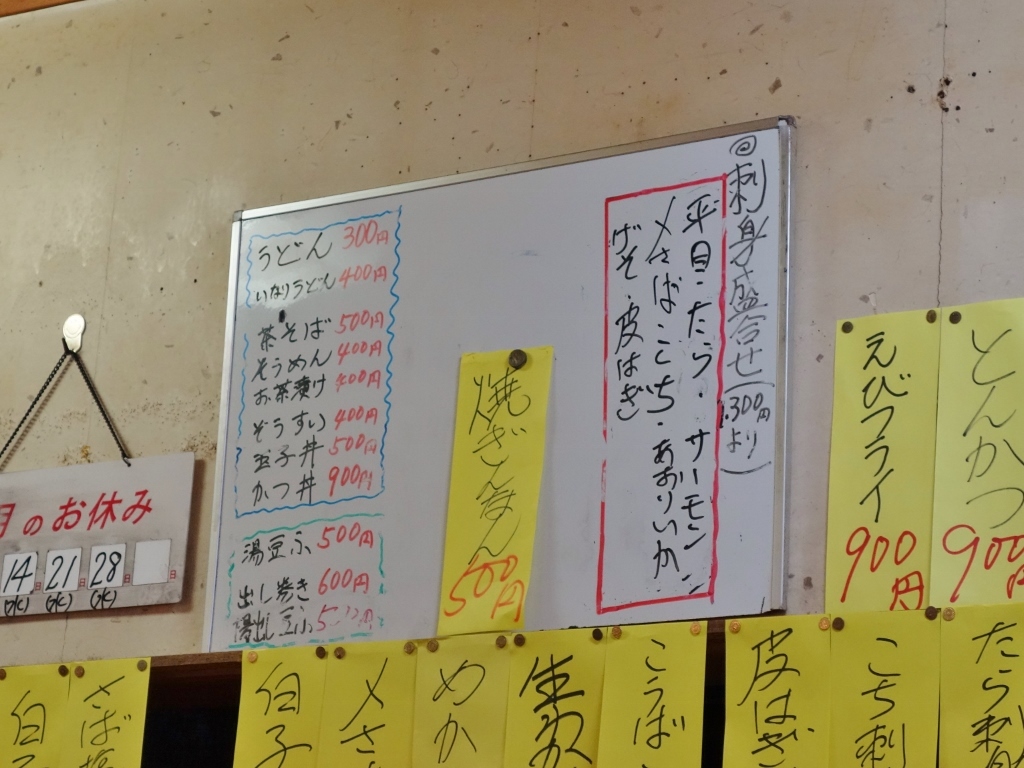 うどん 300円
いなりうどん 400円
茶そば 500円
そうめん 400円
お茶漬け 400円
ぞうすい 400円
玉子丼 500円
かつ丼 900円
湯豆ふ 500円
出し巻き 600円
湯出し豆ふ 500円
焼ぎんなん
500円
◎刺身盛合せ(1,300円より)
平目・たら・サーモン
〆さば・こち・あおりいか
げそ・皮はぎ
えびフライ
900円
とんかつ
900
月のお休み
14日 21日 28日 日
(水) (水) (水)
白子
さば塩
白子
〆さ
めか
生
こうば
皮はぎ
こち刺
たら刺